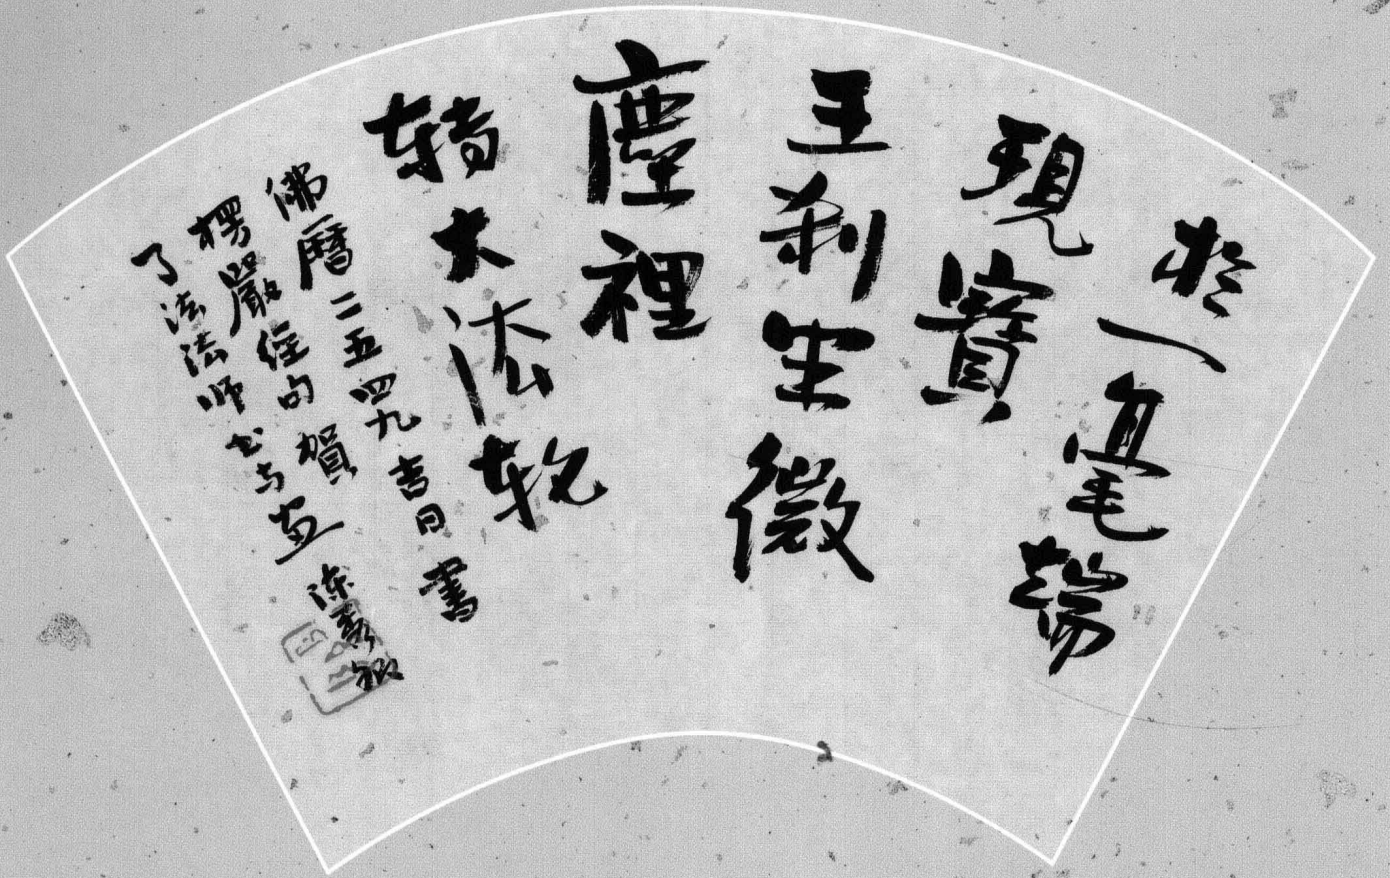 於一毫端
現寶
王剎坐微
塵裡
轉大法輪
佛曆二五四九吉日書
楞嚴經句賀
了法法师书与画陈